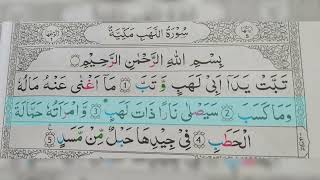 سُوْرَةُ اللَّهَبِ مَكِّيَّةٌ
بِسْمِ اللهِ الرَّحْمٰنِ الرَّحِيْمِ
تَبَّتْ يَدَآ اَبِىْ لَهَبٍ وَّتَبَّ ۝١ مَآ اَغْنٰى عَنْهُ مَالُهٗ
وَمَا كَسَبَ ۝٢ سَيَصْلٰى نَارًا ذَاتَ لَهَبٍ ۝٣ وَّامْرَاَتُهٗ حَمَّالَةَ
الْحَطَبِ ۝٤ فِىْ جِيْدِهَا حَبْلٌ مِّنْ مَّسَدٍ ۝٥